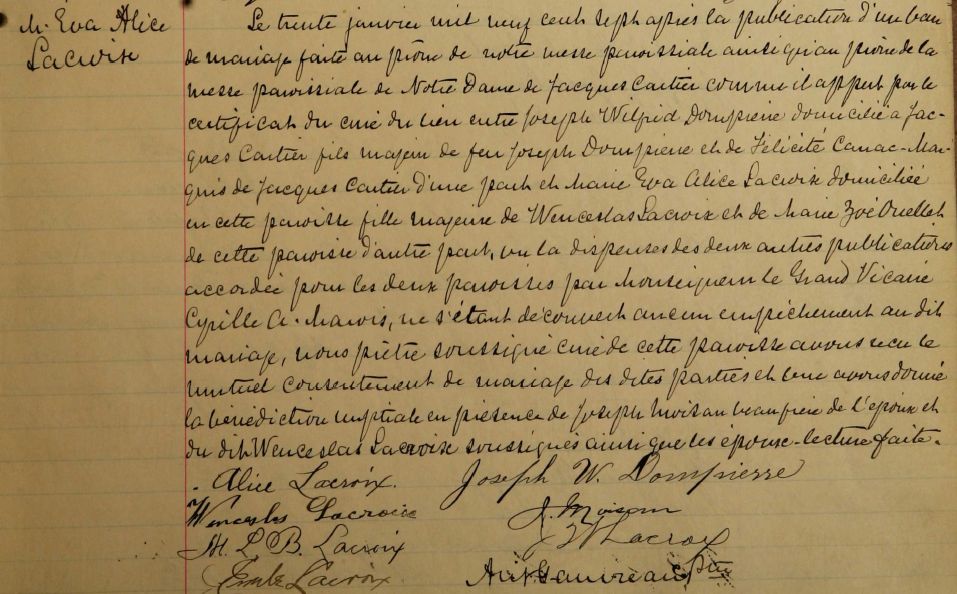 M. Eva Alice
Lacroix
Le trente janvier mil neuf cent sept après la publication d'un ban
de mariage faite au prône de notre messe paroissiale ainsi qu'au prône de la
messe paroissiale de Notre Dame de Jacques Cartier comme il appert par le
certificat du curé du lieu entre Joseph Wilfrid Dompierre domicilié à Jac-
ques Cartier fils majeur de feu Joseph Dompierre et de Félicité Canac-Mar-
quis de Jacques Cartier d'une part et Marie Eva Alice Lacroix domiciliée
en cette paroisse fille majeure de Wenceslas Lacroix et de Marie Zoé Ouellet
de cette paroisse d'autre part, vu la dispenses des deux autres publications
accordée pour les deux paroisses par Monseigneur le Grand Vicaire
Cyrille A. Marois, ne s'étant découvert aucun empêchement au dit
mariage, nous prêtre soussigné curé de cette paroisse avons reçu le
mutuel consentement de mariage des dites parties et leur avons donné
la bénédiction nuptiale en présence de Joseph Moisan beaupère de l'époux et
du dit Wenceslas Lacroix soussignés ainsi que les époux - lecture faite.
Alice Lacroix. Joseph W. Dompierre
Wenceslas Lacroix J. Moisan
M. L. B. Lacroix J W Lacroix
Emile Lacroix Ant Gauvreau Ptre